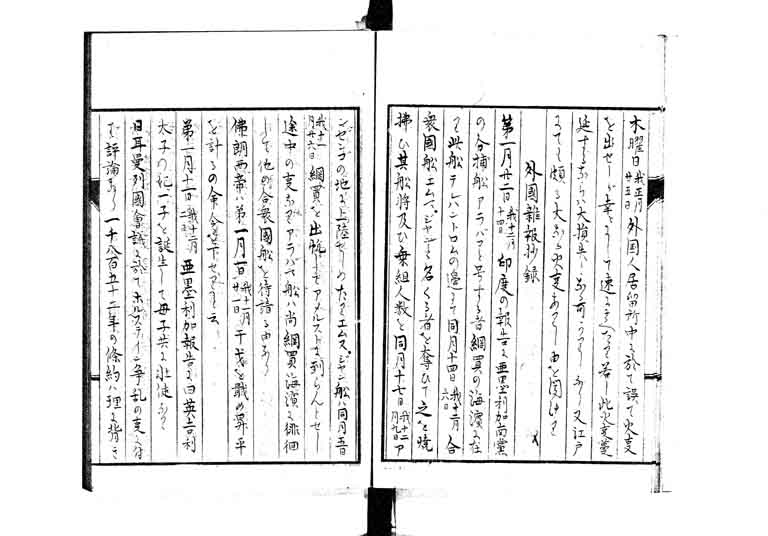 木曜日我正月廿五日外国人居留所中に於て誤て火変
を出せしが幸にして速に
延するならバ大損失
にても頗る大なる火変ありし由を聞けり
外國雜報抄録
第一月廿二日我十二月十四日印度の報告に亜墨利加南黨
の合補船アラバマと号する者綱買の海濱に在
て此船テレバントロムの邊にて同月十四日我十二月六日合
衆國船エムマジヤンと名くる者を奪ひて之を焼
拂ひ其船将及び乗組人数を同月十七日我十二月九日ア
ンゼンゴの地に上陸せしめたりエムスジヤン船ハ同月五日
我十一月廿六日綱買を出帆してアメルストに到らんとせし
途中の変なりアラバマ船ハ尚綱買海濱に徘徊
して他の合衆國船を待請る由なり
佛朗西帝ハ第一月一日我十一月廿二日干戈を戢め昇平
を計るの余
第一月十一日我十二月三日亜墨利加報告に曰英吉利
太子の妃一子を誕生して母子共に壮健なり
日耳曼列國會議に於てホルスタイン争乱の変に付
て評論あり一千八百五十二年の條約ハ理に背き